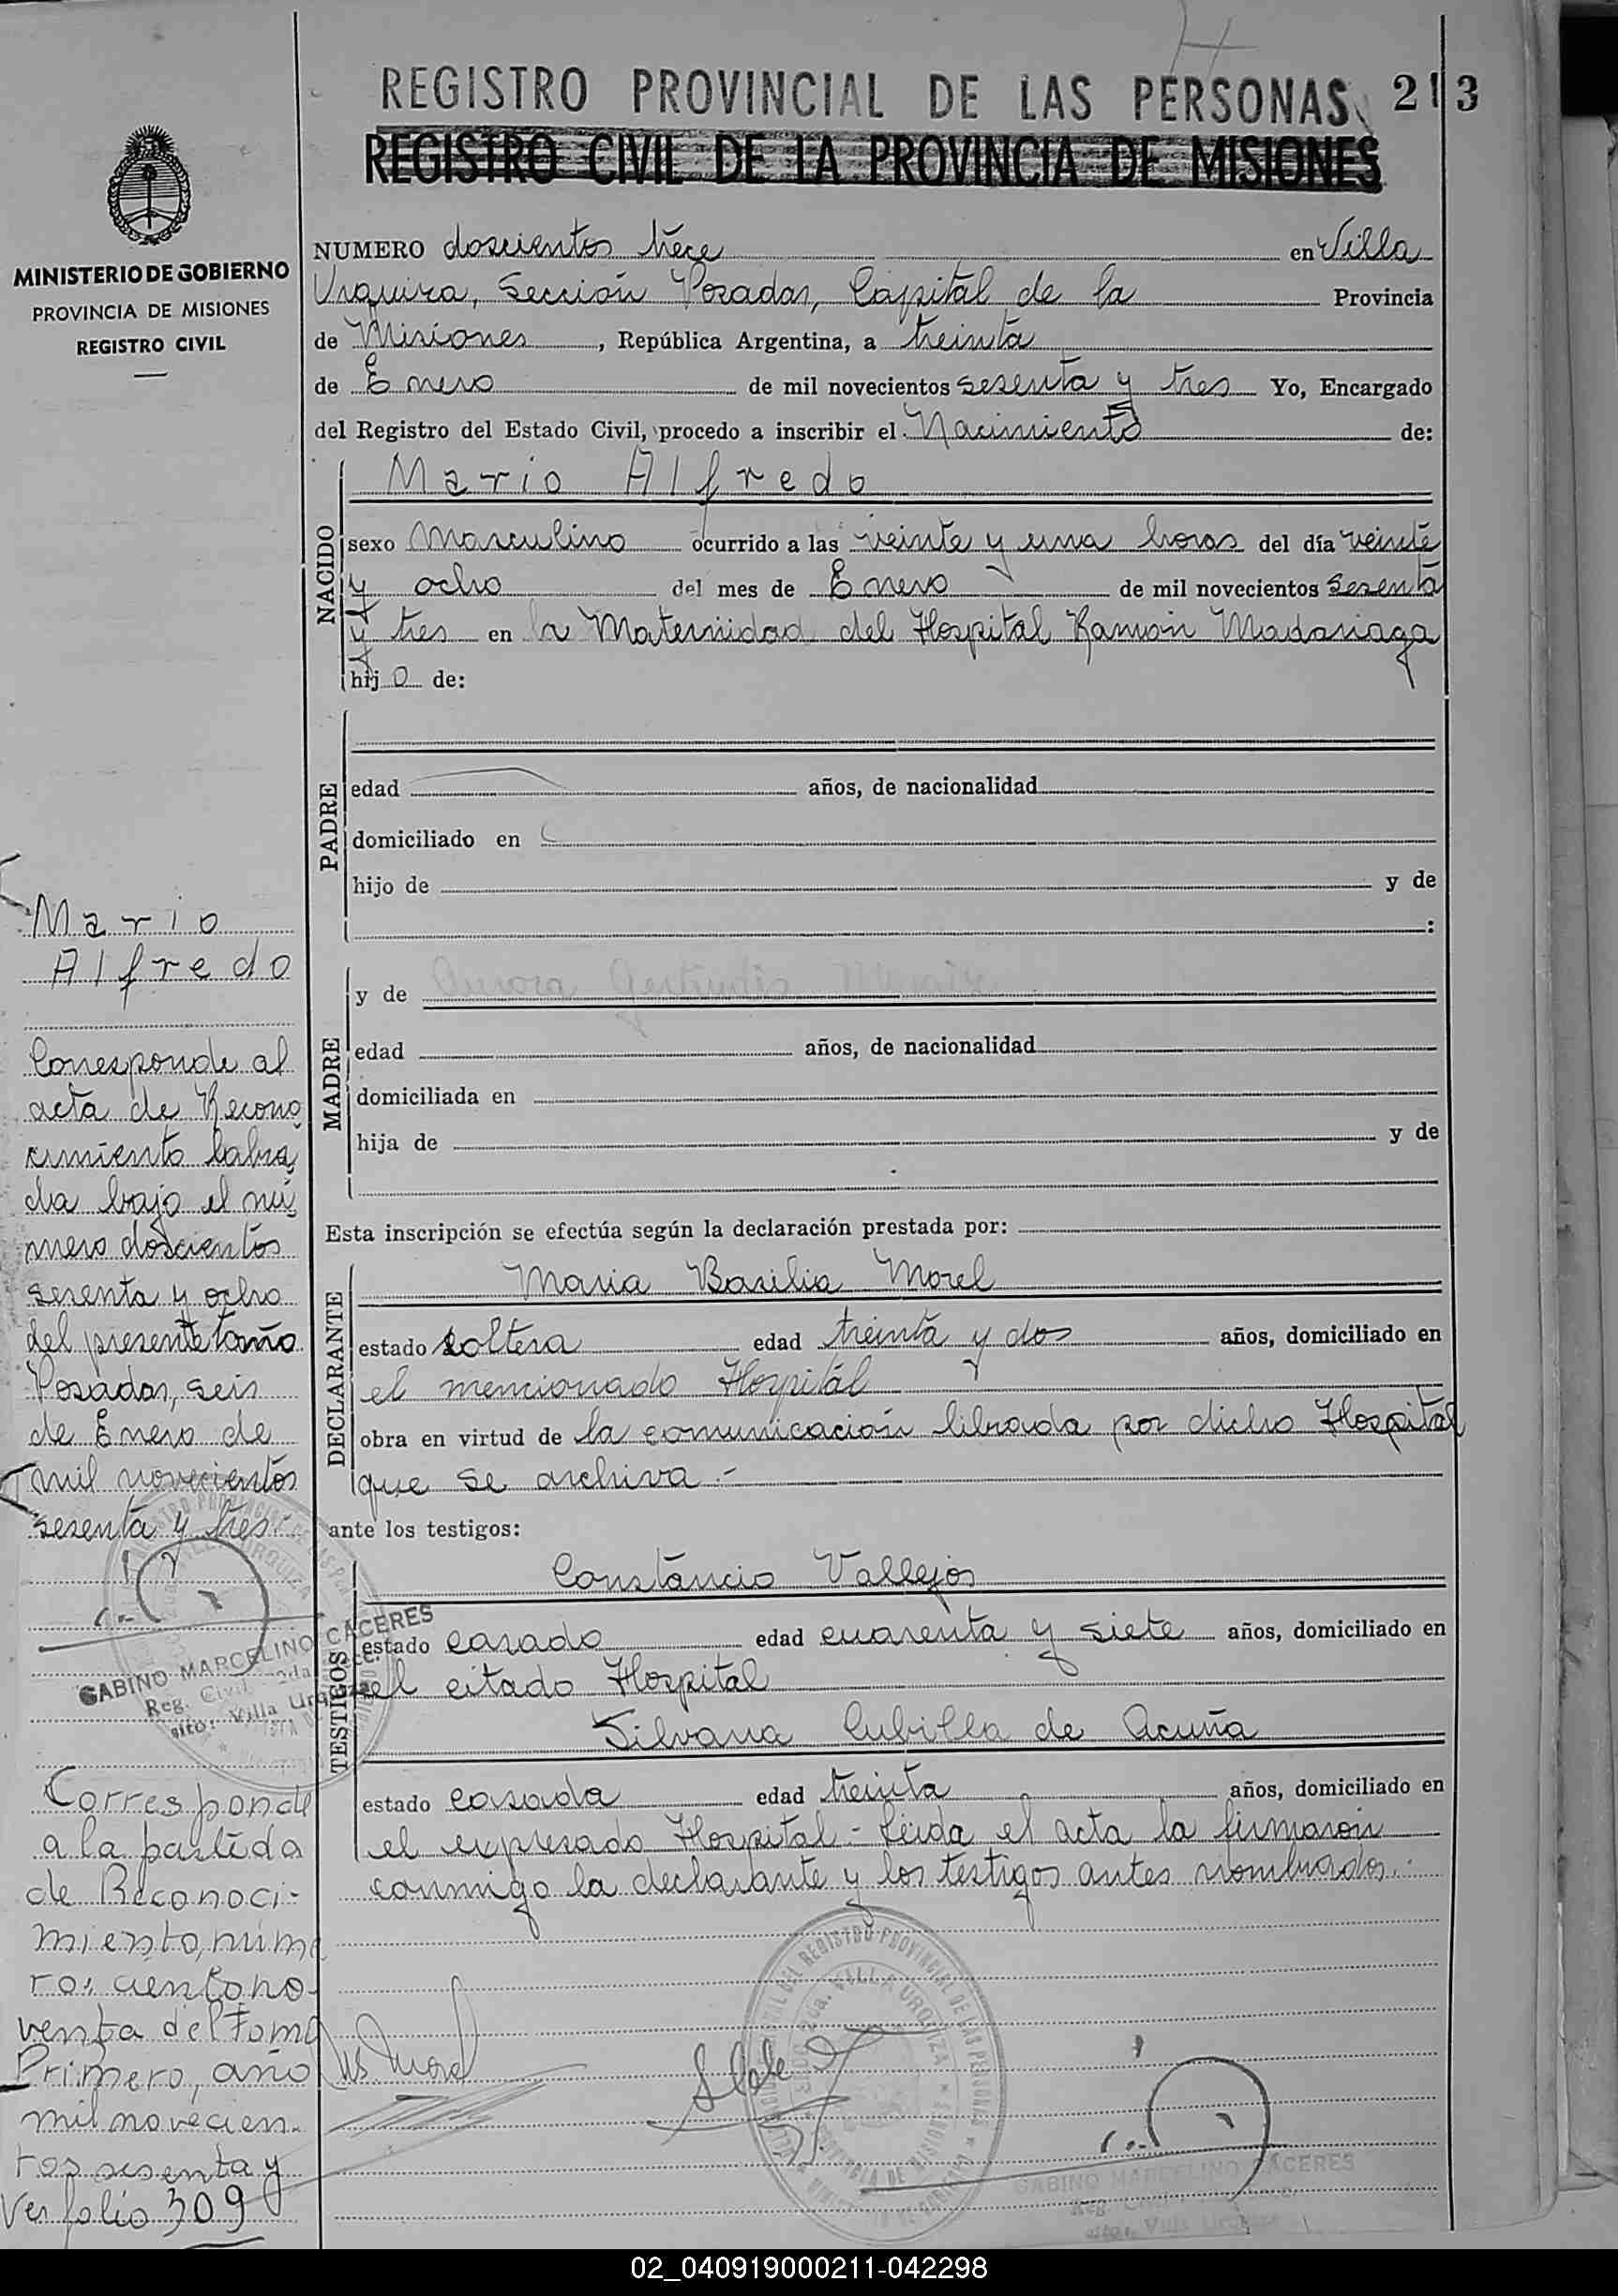 REGISTRO PROVINCIAL DE LAS PERSONAS 213
REGISTRO CIVIL DE LA PROVINCIA DE MISIONES
MINISTERIO DE GOBIERNO
PROVINCIA DE MISIONES
REGISTRO CIVIL
NUMERO doscientos trece en Villa
Urquiza, Sección Posadas, Capital de la Provincia
de Misiones, República Argentina, a treinta
de Enero de mil novecientos sesenta y tres Yo, Encargado
del Registro del Estado Civil, procedo a inscribir el Nacimiento de:
NACIDO
Mario Alfredo
sexo Masculino ocurrido a las veinte y una horas del día veinte
y ocho del mes de Enero de mil novecientos sesenta
y tres en la Maternidad del Hospital Ramón Madariaga
hijo de:
PADRE
edad años, de nacionalidad
domiciliado en
hijo de y de
:
MADRE
y de Aurora Gertrudis
edad años, de nacionalidad
domiciliada en
hija de y de
Esta inscripción se efectúa según la declaración prestada por:
DECLARANTE
Maria Basilia Morel
estado soltera edad treinta y dos años, domiciliado en
el mencionado Hospital
obra en virtud de la comunicación librada por dicho Hospital
que se archiva.-
ante los testigos:
TESTIGOS
Constancio Vallejos
estado casado edad cuarenta y siete años, domiciliado en
el citado Hospital
Silvana Cubilla de Acuña
estado casada edad treinta años, domiciliado en
el expresado Hospital - Leída el acta la firmaron
conmigo la declarante y los testigos antes nombrados.-
Morel
GABINO MARCELINO CACERES
Mario
Alfredo
Corresponde al
acta de Recono
cimiento labra
da bajo el nú
mero doscientos
sesenta y ocho
del presente tomo
Posadas, seis
de Enero de
mil novecientos
sesenta y tres.-
GABINO MARCELINO CACERES
Reg. Civil 2da. Secc.
sito: Villa Urquiza
Corresponde
a la partida
de Reconoci-
miento, núme
ro: ciento no-
venta del Tomo
Primero, año
mil novecien-
tos sesenta y
Ver folio 309
02_040919000211-042298